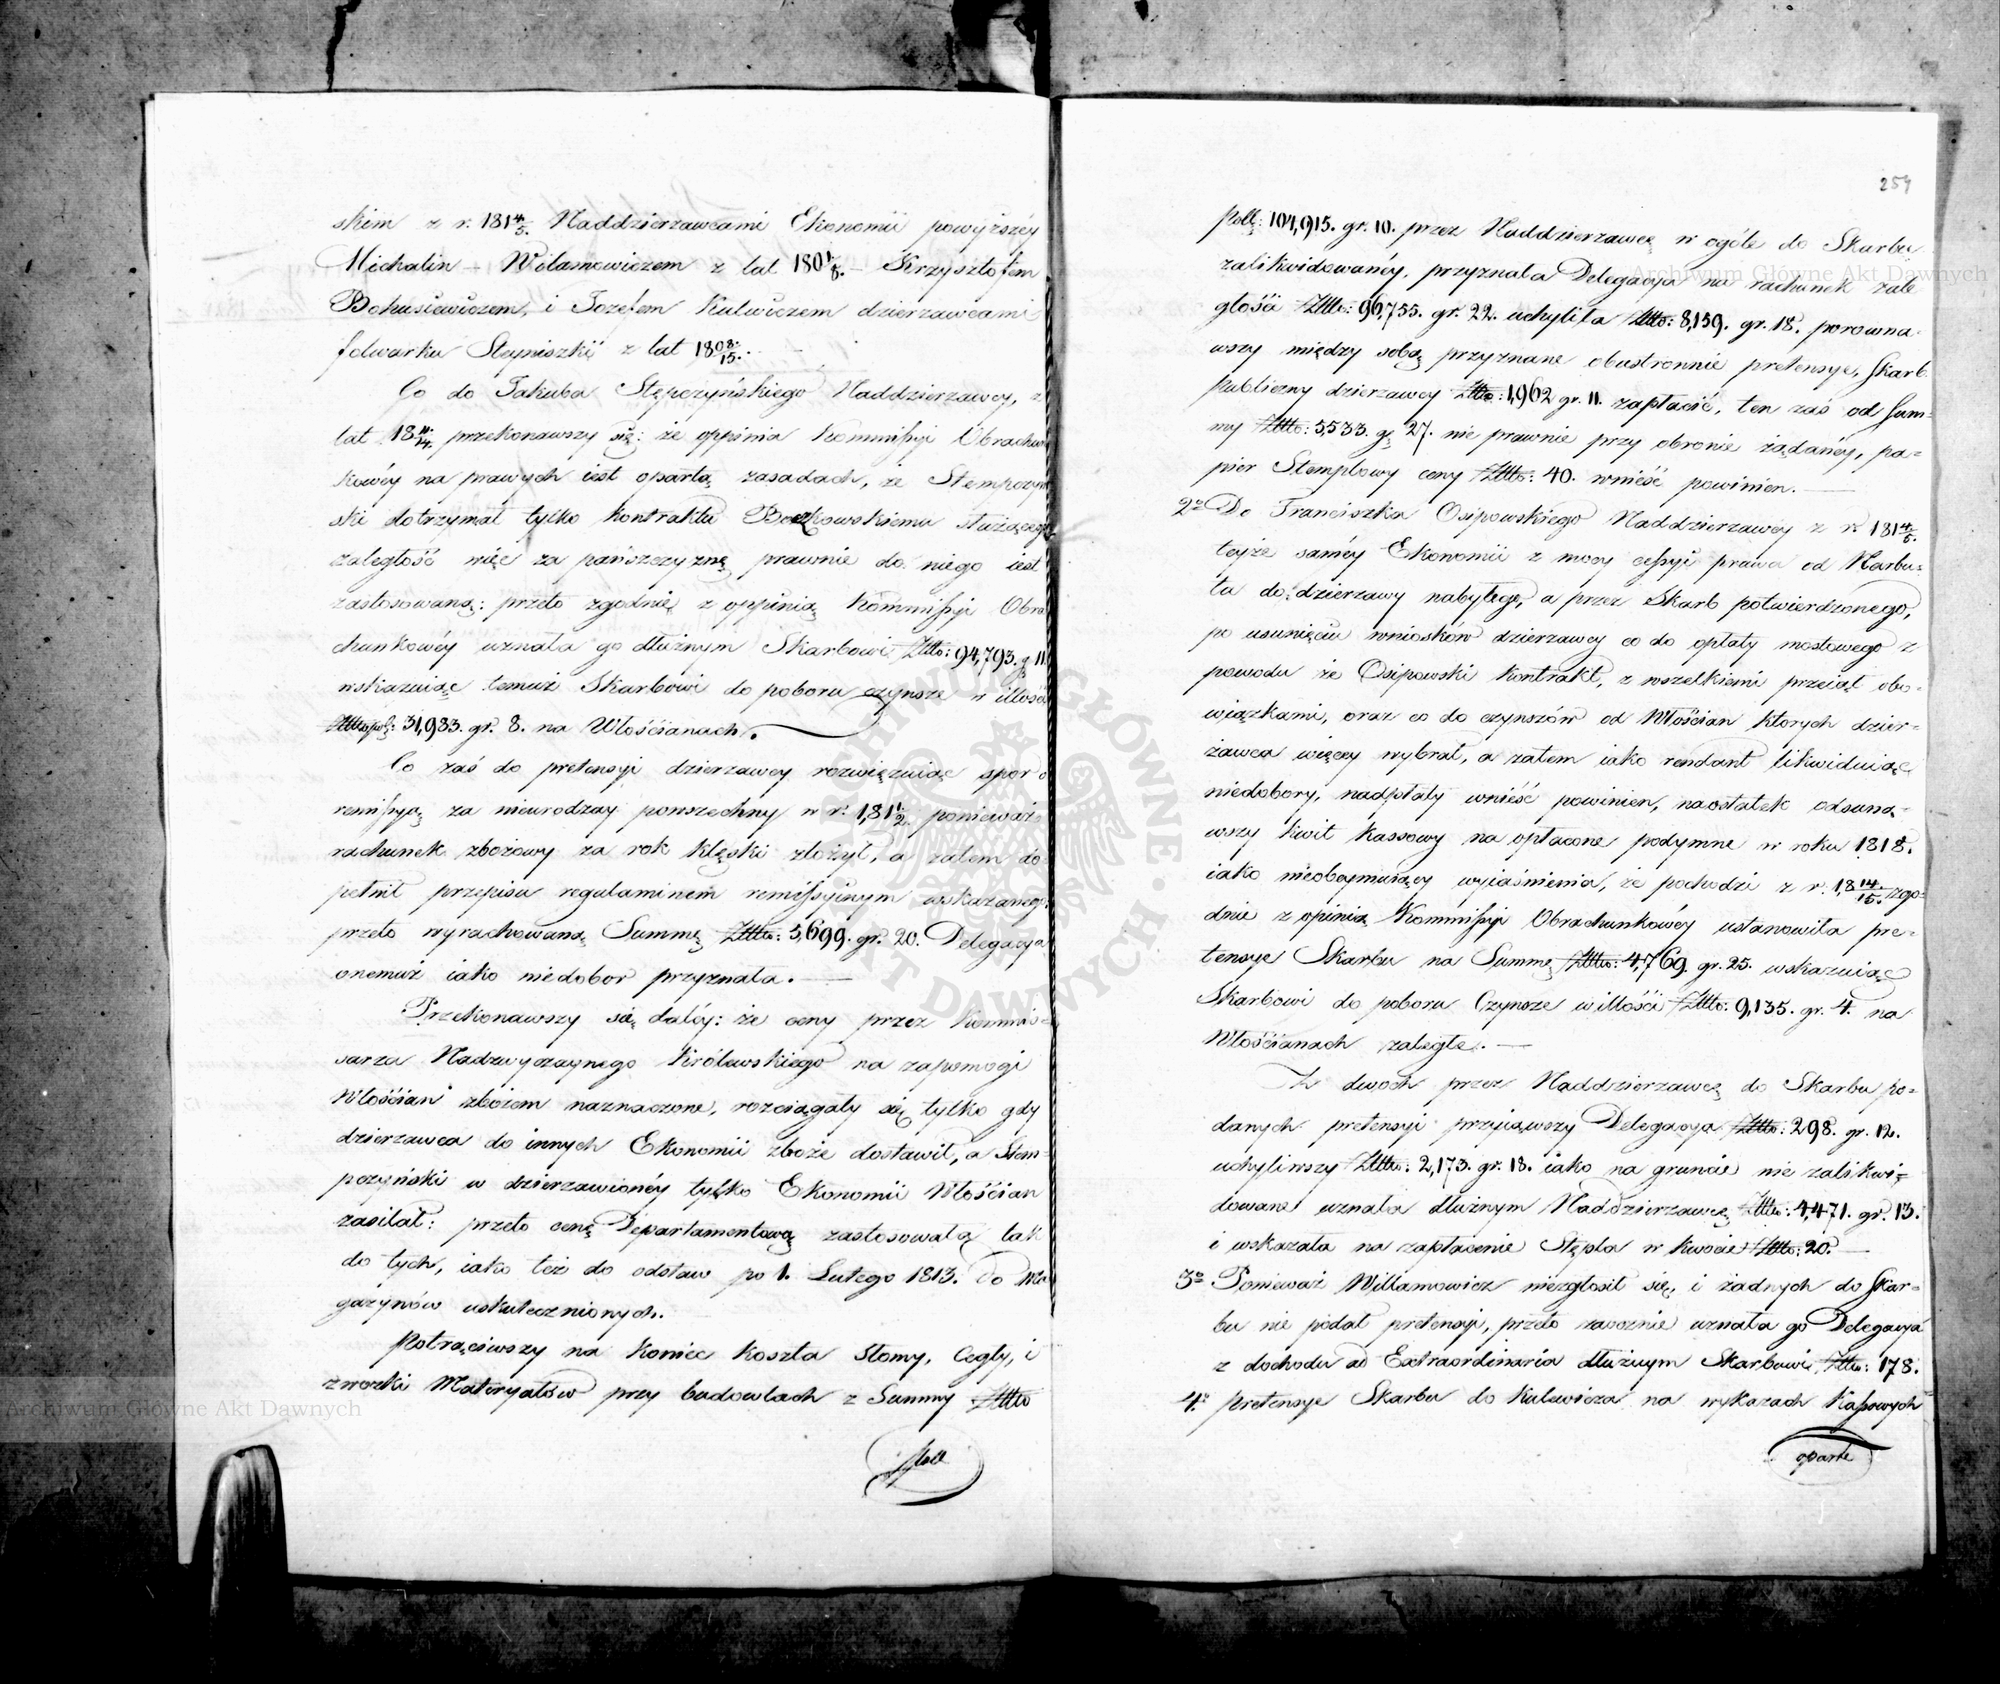 skim z r. 181 4/5. Naddzierzawcami Ekonomii powyższéy
Michalin – Wilamowiczem z lat 180 – Krzysztofem
Bohusiewiczem, i Jozefem Kulwiczem dzierzawcami
folwarku Stayniszki z lat 18 08/15.
Co do Jakuba Stępczyńskiego Naddzierzawcy, z
lat 18 przekonawszy się: że oppinia Kommissyi Obrachun
kowéy na prawych iest opartą zasadach, że Stempczyń
ski dotrzymał tylko kontraktu Boczkowskiemu służącego
zaległość więc za pańszczyznę prawnie do niego iest
zastosowaną: przeto zgodnie z oppinią Kommissyi Obra
chunkowéy uznała go dłużnym Skarbowi Złtto: 94,793. g 11
wskazuiąc temuż Skarbowi do poboru czynsze w illości
Złttopol: 31,983. gr. 8. na Włościanach.
Co zaś do pretensyi dzierzawcy rozwięzuiąc spor o
remissyą za nieurodzay powszechny w r. 181 1/2. ponieważ
rachunek zbożowy za rok klęski złożył, a zatem do
pełnił przepisu regulaminem remissyinym wskazanego
przeto wyrachowaną Summę Złtto: 3,699. gr. 20. Delegacya
onemuż iako niedobor przyznała. —
Przekonawszy się daléy: że ceny przez Kommis-
sarza Nadzwyczaynego Królewskiego na zapomogi
Włościan zbożem naznaczone, rozciągały się tylko gdy
dzierzawca do innych Ekonomii zboże dostawił, a Stem-
pczyński w dzierzawionéy tylko Ekonomii Włościan
zasilał: przeto cenę Departamentową zastosowała tak
do tych, iako też do odstaw po 1. Lutego 1813. do Ma
gazynów uskutecznionych.
Potrąciwszy na koniec koszta Słomy, Cegły, i
zwozki Materyałów przy budowlach z Summy Złtto
poll
259
poll: 104,915. gr. 10. przez Naddzierzawcę w ogóle do Skarbu
zalikwidowanéy, przyznała Delegacya na rachunek zale
głości Złtto: 96,755. gr. 22. uchyliła Złtto: 8,159. gr. 18. porowna-
wszy między sobą przyznane obustronnie pretensye, Skarb
Publiczny dzierzawcy Złtto: 1,962 gr. 11. zapłacić, ten zaś od Sum-
my Złtto: 5,533. g 27. nie prawnie przy obronie żądanéy, pa-
pier Stemplowy ceny Złtto: 40. wnieść powinien. —
2o Do Franciszka Osipowskiego Naddzierzawcy z r. 181 4/5.
teyże saméy Ekonomii z mocy cessyi prawa od Narbu-
ta do dzierzawy nabytego, a przez Skarb potwierdzonego,
po usunięciu wniosków dzierzawcy co do opłaty mostowego z
powodu że Osipowski kontrakt, z wszelkiemi przeiął obo-
wiązkami, oraz co do czynszów od Włościan ktorych dzier-
żawca więcey wybrał, a zatem iako rendant likwiduiąc
niedobory, nadpłaty wnieść powinien, naostatek odsuną-
wszy kwit kassowy na opłacone podymne w roku 1818.
iako nieobeymuiący wyiaśnienia, że pochodzi z r. 18 14/15. zgo-
dnie z opinią Kommissyi Obrachunkowéy ustanowiła pre-
tensye Skarbu na Summę Złtto: 4,769. gr. 25. wskazuiąc
Skarbowi do poboru Czynsze w illości Złtto: 9,135. gr. 4. na
Włościanach zaległe. —
Z dwoch przez Naddzierzawcę do Skarbu po-
danych pretensyi przyiąwszy Delegacya Złtto: 298. gr. 12.
uchyliwszy Złtto: 2,173. gr. 18. iako na gruncie nie zalikwi-
dowane uznała dłużnym Naddzierzawcę Złtto: 4,471. gr. 13.
i wskazała na zapłacenie Stępla w kwocie Złtto: 20. —
3o Ponieważ Willamowicz niezgłosił się, i żadnych do Skar-
bu nie podał pretensyi, przeto zaocznie uznała go Delegacya
z dochodu ad Extraordinaria dłużnym Skarbowi Złtto: 178.
4o Pretensye Skarbu do Kulewicza na wykazach Kassowych
oparte
Archiwum Główne Akt Dawnych
Archiwum Główne Akt Dawnych
ARCHIWUM GŁÓWNE AKT DAWNYCH